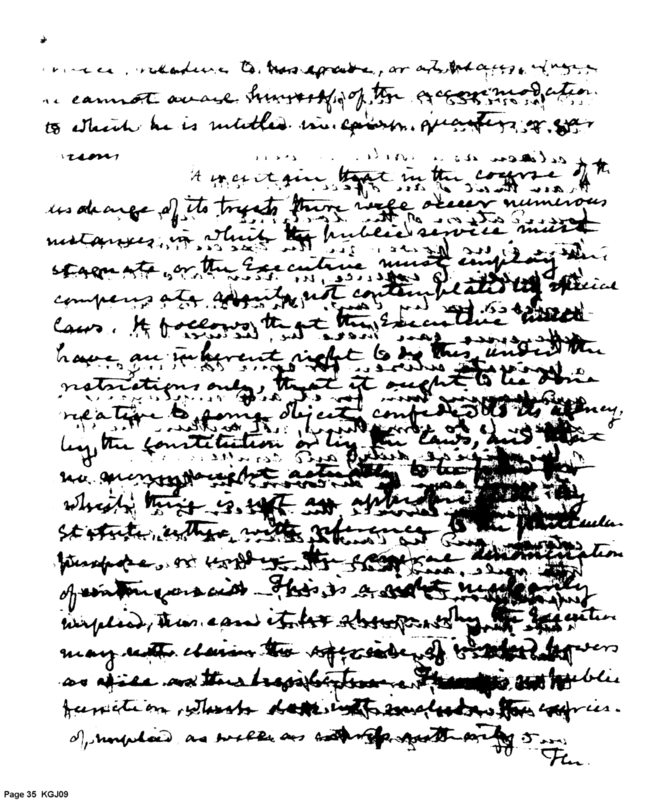 relative to his grade, or at places where
he cannot avail himself of the accommodation
to which he is entitled in quarters or gar
risons
It is certain that in the course of the
discharge of its trusts there will occur numerous
instances in which the public service must
stagnate, or the Executive must employ and
compensate agents not contemplated by special
laws. It follows, that the Executive must
have an inherent right to do this, under the
restrictions only, that it ought to be done
relative to some object confided to its agency,
by the constitution or by the laws, and that
no money ought actually to be paid for
which there is not an appropriation by
Statute, either with reference to the particular
purpose, or under the general denomination
of contingencies. This is a right necessarily
implied, nor can it be shown, why the Executive
may not claim the exercise of implied powers
as well as the legislative. There is no public
function, which does not include the exercise
of, implied as well as authority
The
Page 35 KGJ09